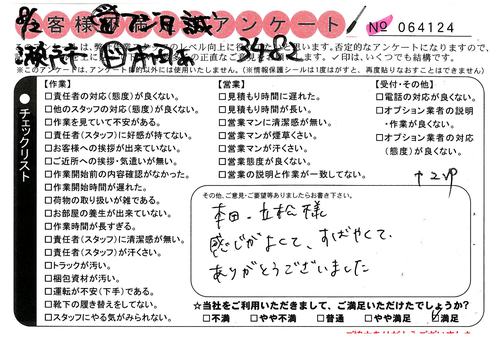 お客様満足度アンケート
No 064124
3482
※このアンケートは、アンケート目的以外には使用いたしません。(※情報保護シールは1度はがすと、再度貼りなおすことはできません)
チェックリスト
【作業】
□責任者の対応(態度)が良くない。
□他のスタッフの対応(態度)が良くない。
□作業を見ていて不安がある。
□責任者(スタッフ)に好感が持てない。
□お客様への挨拶が出来ていない。
□ご近所への挨拶・気遣いが無い。
□作業開始前の内容確認がなかった。
□作業開始時間が遅れた。
□荷物の取り扱いが雑である。
□お部屋の養生が出来ていない。
□作業時間が長すぎる。
□責任者(スタッフ)に清潔感が無い。
□責任者(スタッフ)が汗くさい。
□トラックが汚い。
□梱包資材が汚い。
□運転が不安(下手)である。
□靴下の履き替えをしてない。
□スタッフにやる気がみられない。
【営業】
□見積もり時間に遅れた。
□見積もり時間が長い。
□営業マンに清潔感が無い。
□営業マンが煙草くさい。
□営業マンが汗くさい。
□営業態度が良くない。
□営業の説明と作業が一致してない。
【受付・その他】
□電話の対応が良くない。
□オプション業者の説明
・作業が良くない。
□オプション業者の対応
(態度)が良くない。
その他、ご意見・ご要望等ありましたらお書き下さい。
本田・立松様
感じがよくて、すばやくて、
ありがとうございました
☆当社をご利用いただきまして、ご満足いただけたでしょうか?
□不満 □やや不満 □普通 □やや満足 ☑満足